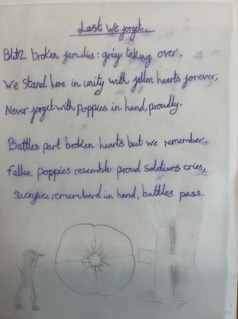 Lest We forget.
Blitz broken families: grief taking over.
We Stand here in unity with fallen hearts forever,
Never forget with poppies in hand, proudly.
Battles part broken hearts but we remember.
Fallen poppies resemble proud Soldiers cries,
Sacrifice rememberd in hand, battles pass.